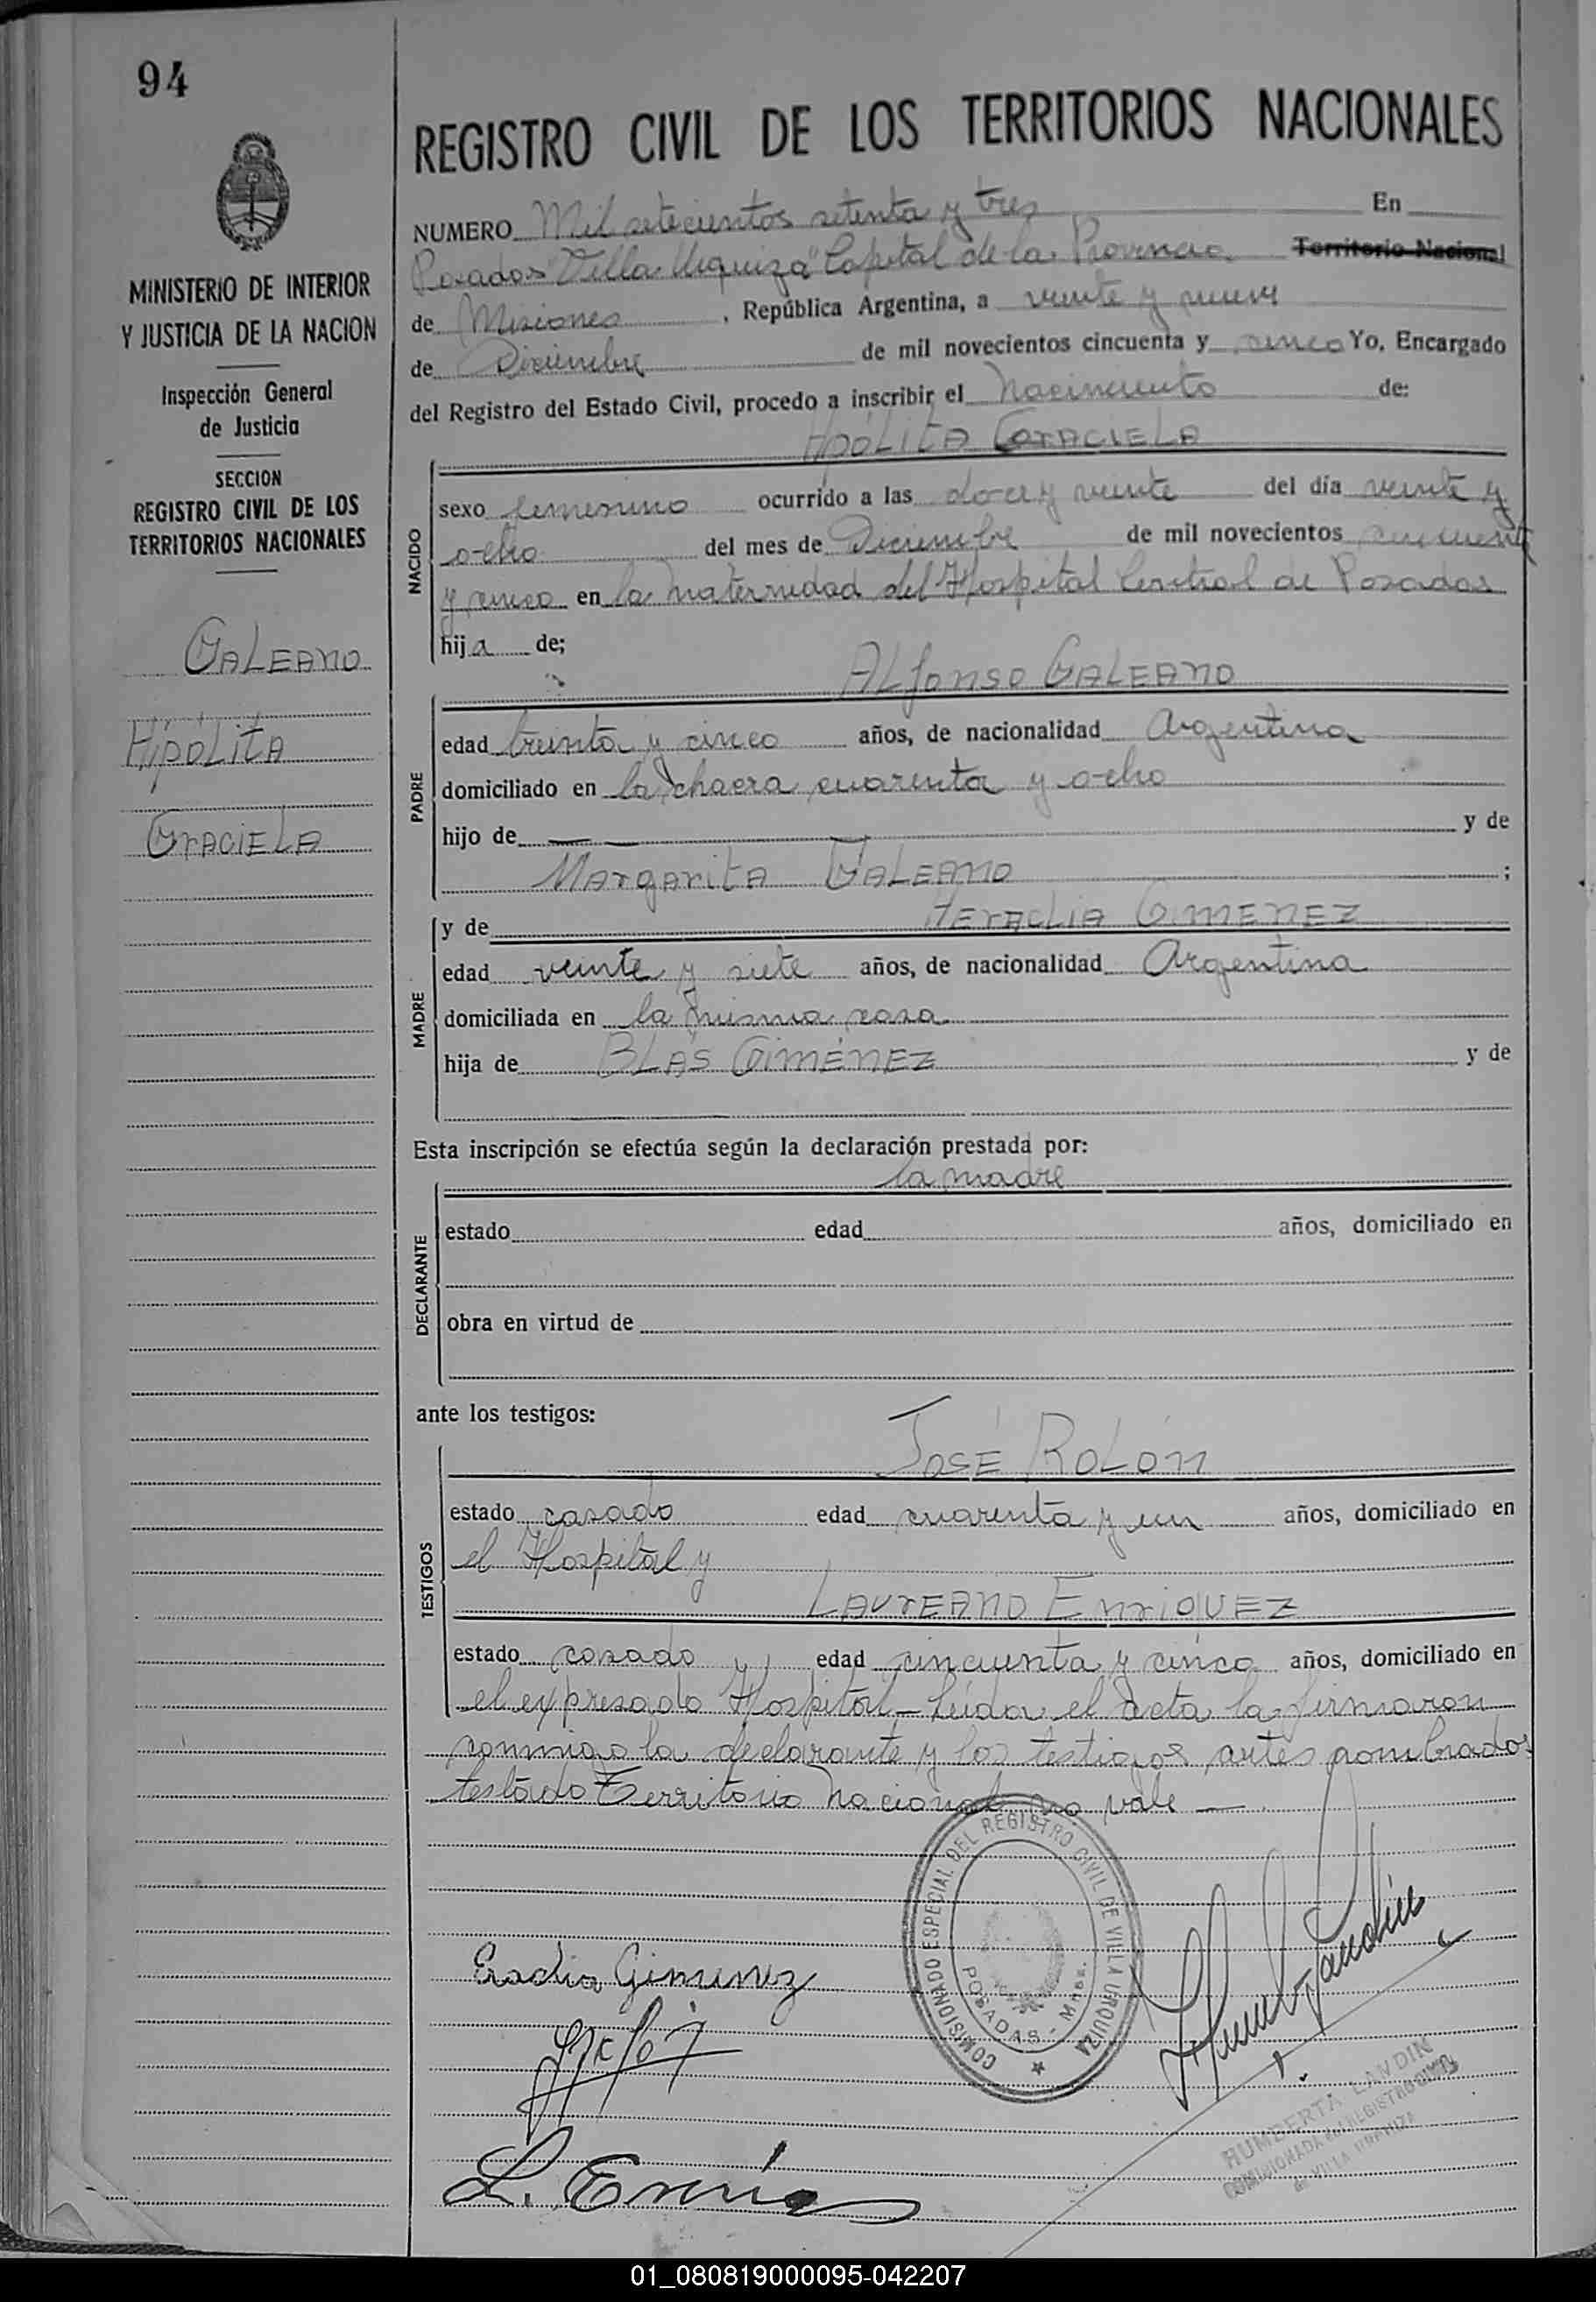 94
MINISTERIO DE INTERIOR
Y JUSTICIA DE LA NACION
Inspección General
de Justicia
SECCION
REGISTRO CIVIL DE LOS
TERRITORIOS NACIONALES
GALEANO
HIPÓLITA
GRACIELA
REGISTRO CIVIL DE LOS TERRITORIOS NACIONALES
NUMERO Mil setecientos setenta y tres En
Posadas "Villa Urquiza" Capital de la Provincia Territorio Nacional
de Misiones, República Argentina, a veinte y nueve
de Diciembre de mil novecientos cincuenta y cinco Yo, Encargado
del Registro del Estado Civil, procedo a inscribir el nacimiento de:
HIPÓLITA GRACIELA
NACIDO
sexo femenino ocurrido a las doce y veinte del día veinte y
ocho del mes de Diciembre de mil novecientos cincuenta
y cinco en la maternidad del Hospital Central de Posadas
hija de;
ALFONSO GALEANO
PADRE
edad treinta y cinco años, de nacionalidad Argentina
domiciliado en la chacra cuarenta y ocho
hijo de — — y de
MARGARITA GALEANO ;
MADRE
y de HERACLIA GIMENEZ
edad veinte y siete años, de nacionalidad Argentina
domiciliada en la misma casa
hija de BLÁS GIMÉNEZ y de
Esta inscripción se efectúa según la declaración prestada por:
la madre
DECLARANTE
estado edad años, domiciliado en
obra en virtud de
ante los testigos:
JOSÉ ROLÓN
TESTIGOS
estado casado edad cuarenta y un años, domiciliado en
el Hospital y
LAUREANO ENRIQUEZ
estado casado y edad cincuenta y cinco años, domiciliado en
el expresado Hospital - Leída el acta la firmaron
conmigo la declarante y los testigos antes nombrados
testado Territorio Nacional no vale —
COMISIONADO ESPECIAL DEL REGISTRO CIVIL DE VILLA URQUIZA
POSADAS - Mnes.
Eradia Gimenez
L. Enri
HUMBERTA LANDIN
COMISIONADA del REGISTRO CIVIL
de VILLA URQUIZA
01_080819000095-042207